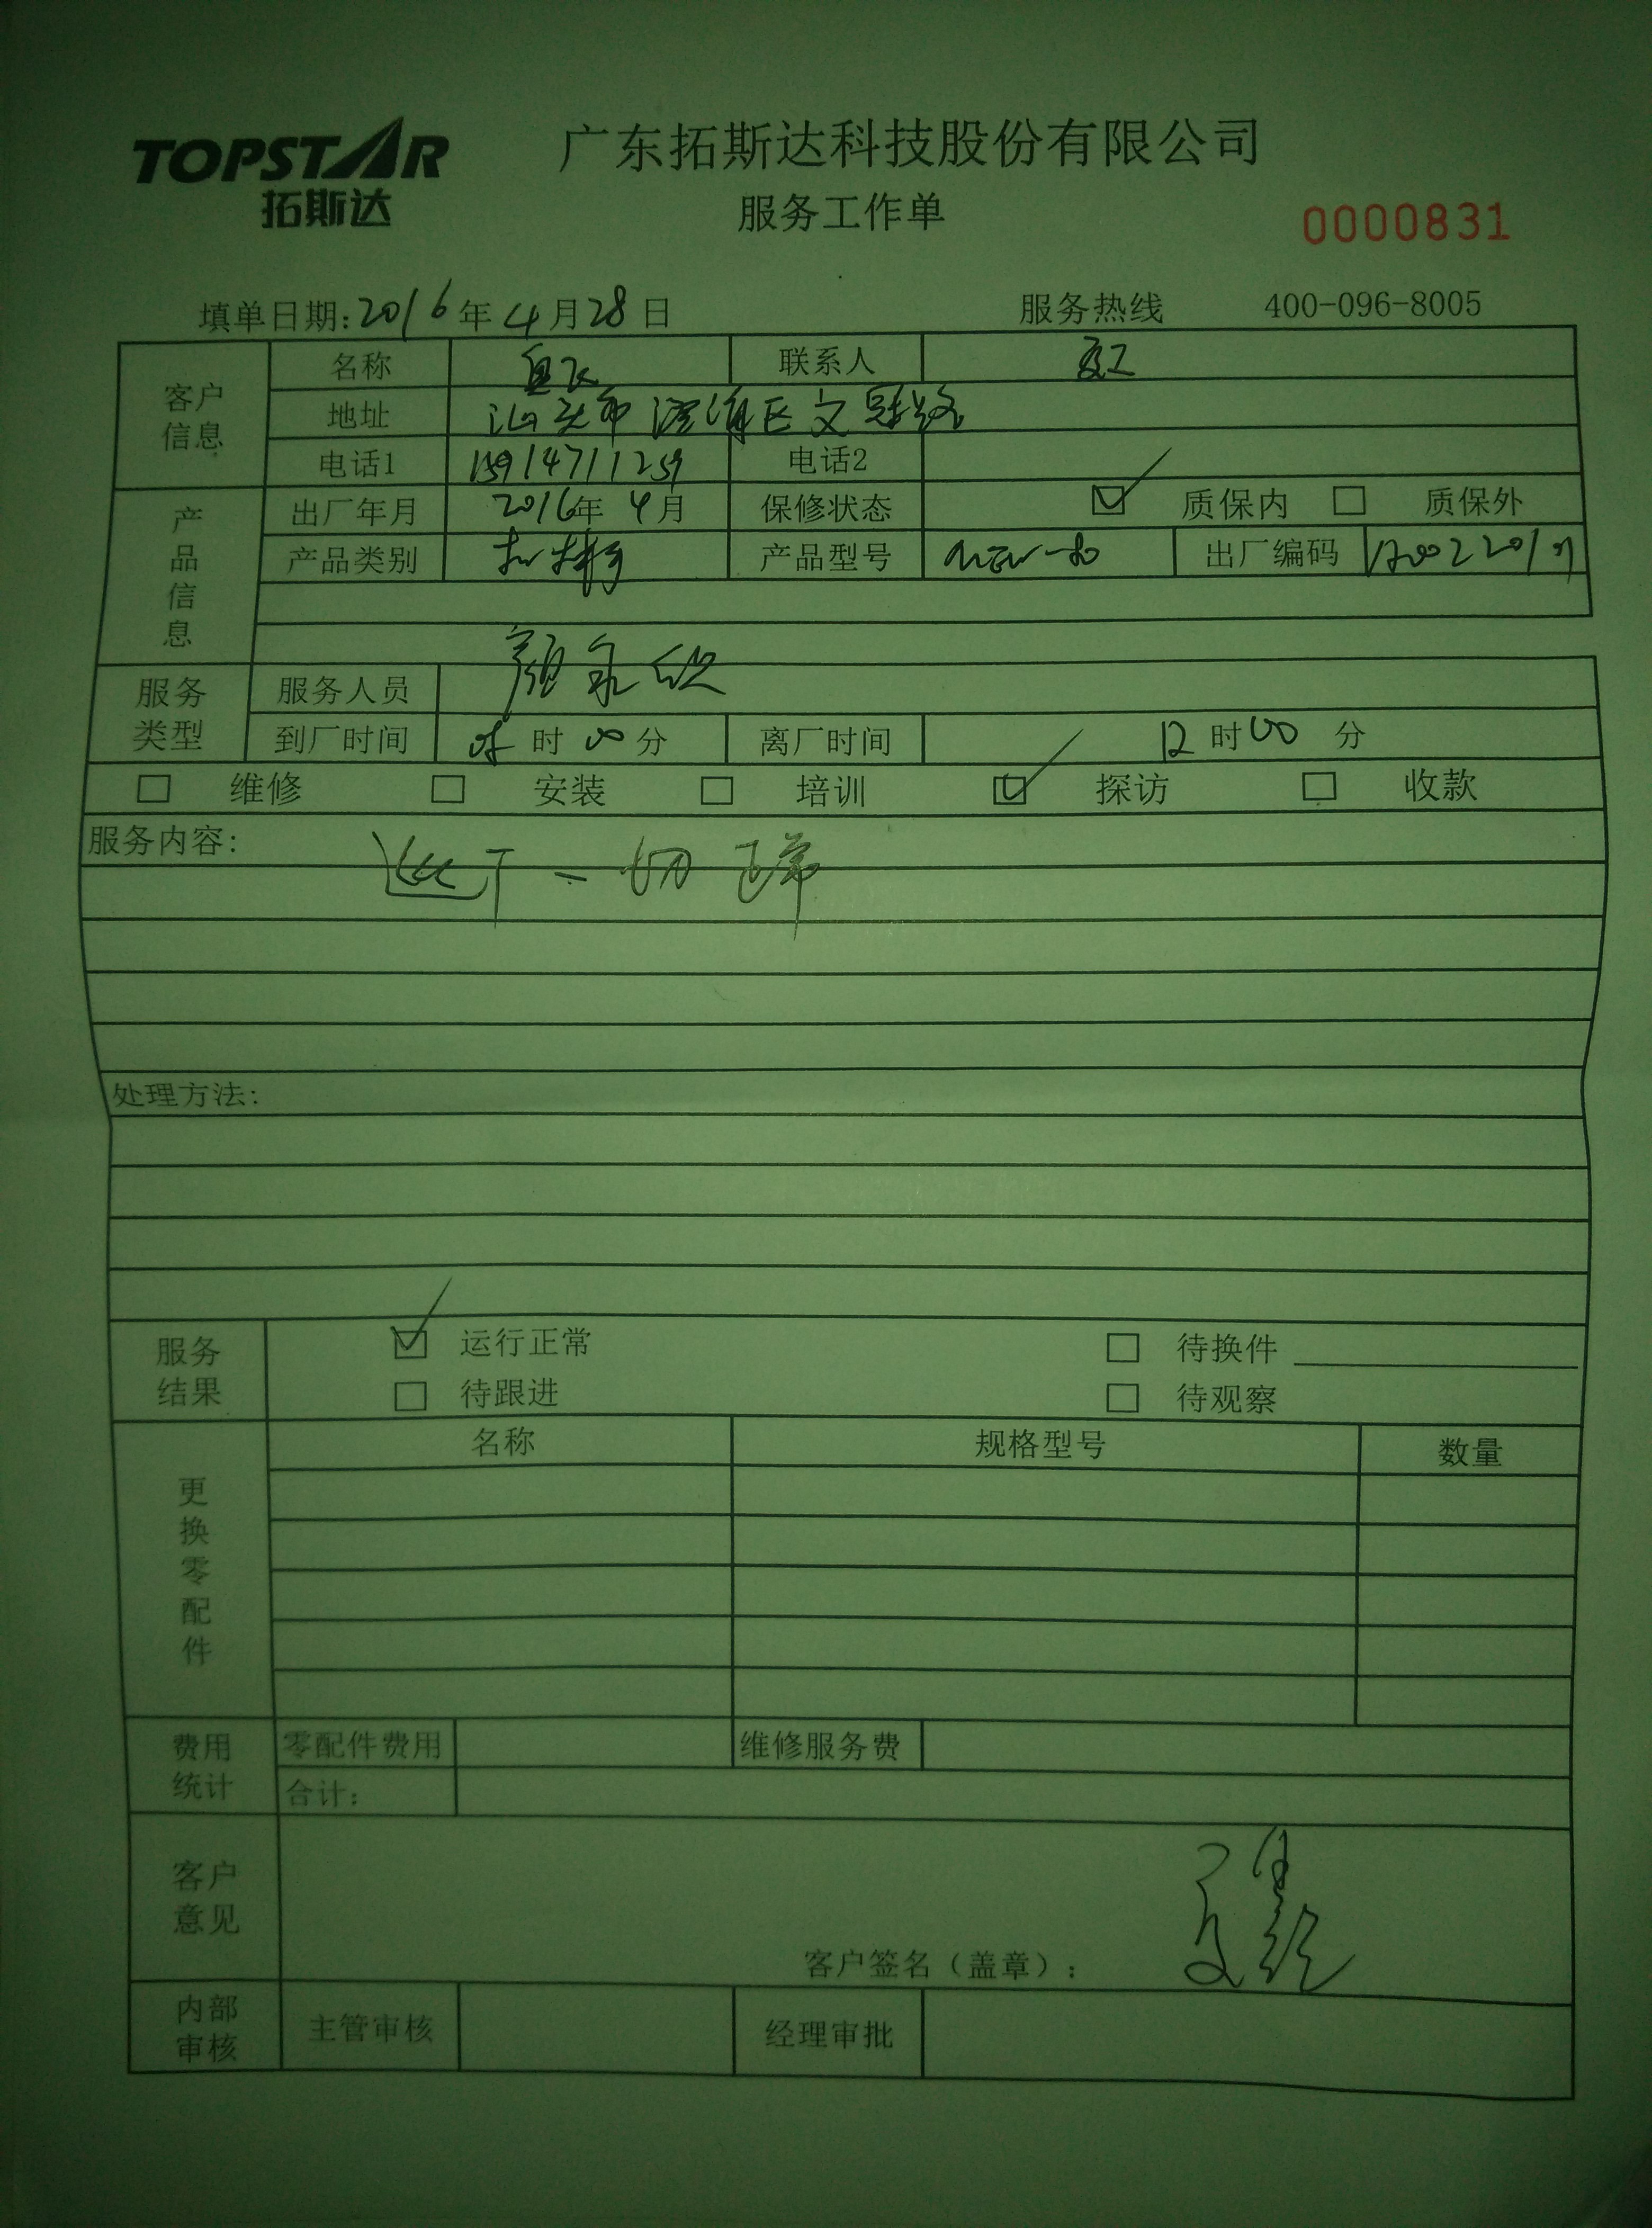 TOPSTAR
拓斯达
广东拓斯达科技股份有限公司
服务工作单
0000831
填单日期:2016年4月28日 服务热线 400-096-8005
客户信息
名称 联系人
地址 汕头市澄海区文冠路
电话1 15914711259 电话2
产品信息
出厂年月 2016年4月 保修状态 ☑ 质保内 □ 质保外
产品类别 机械手 产品型号 出厂编码
服务类型
服务人员 颜
到厂时间 时00分 离厂时间 12时00分
□ 维修 □ 安装 □ 培训 ☑ 探访 □ 收款
服务内容:
一切正常
处理方法:
服务结果
☑ 运行正常 □ 待换件
□ 待跟进 □ 待观察
更换零配件
名称 规格型号 数量
费用统计
零配件费用 维修服务费
合计:
客户意见
客户签名(盖章):
内部审核
主管审核 经理审批